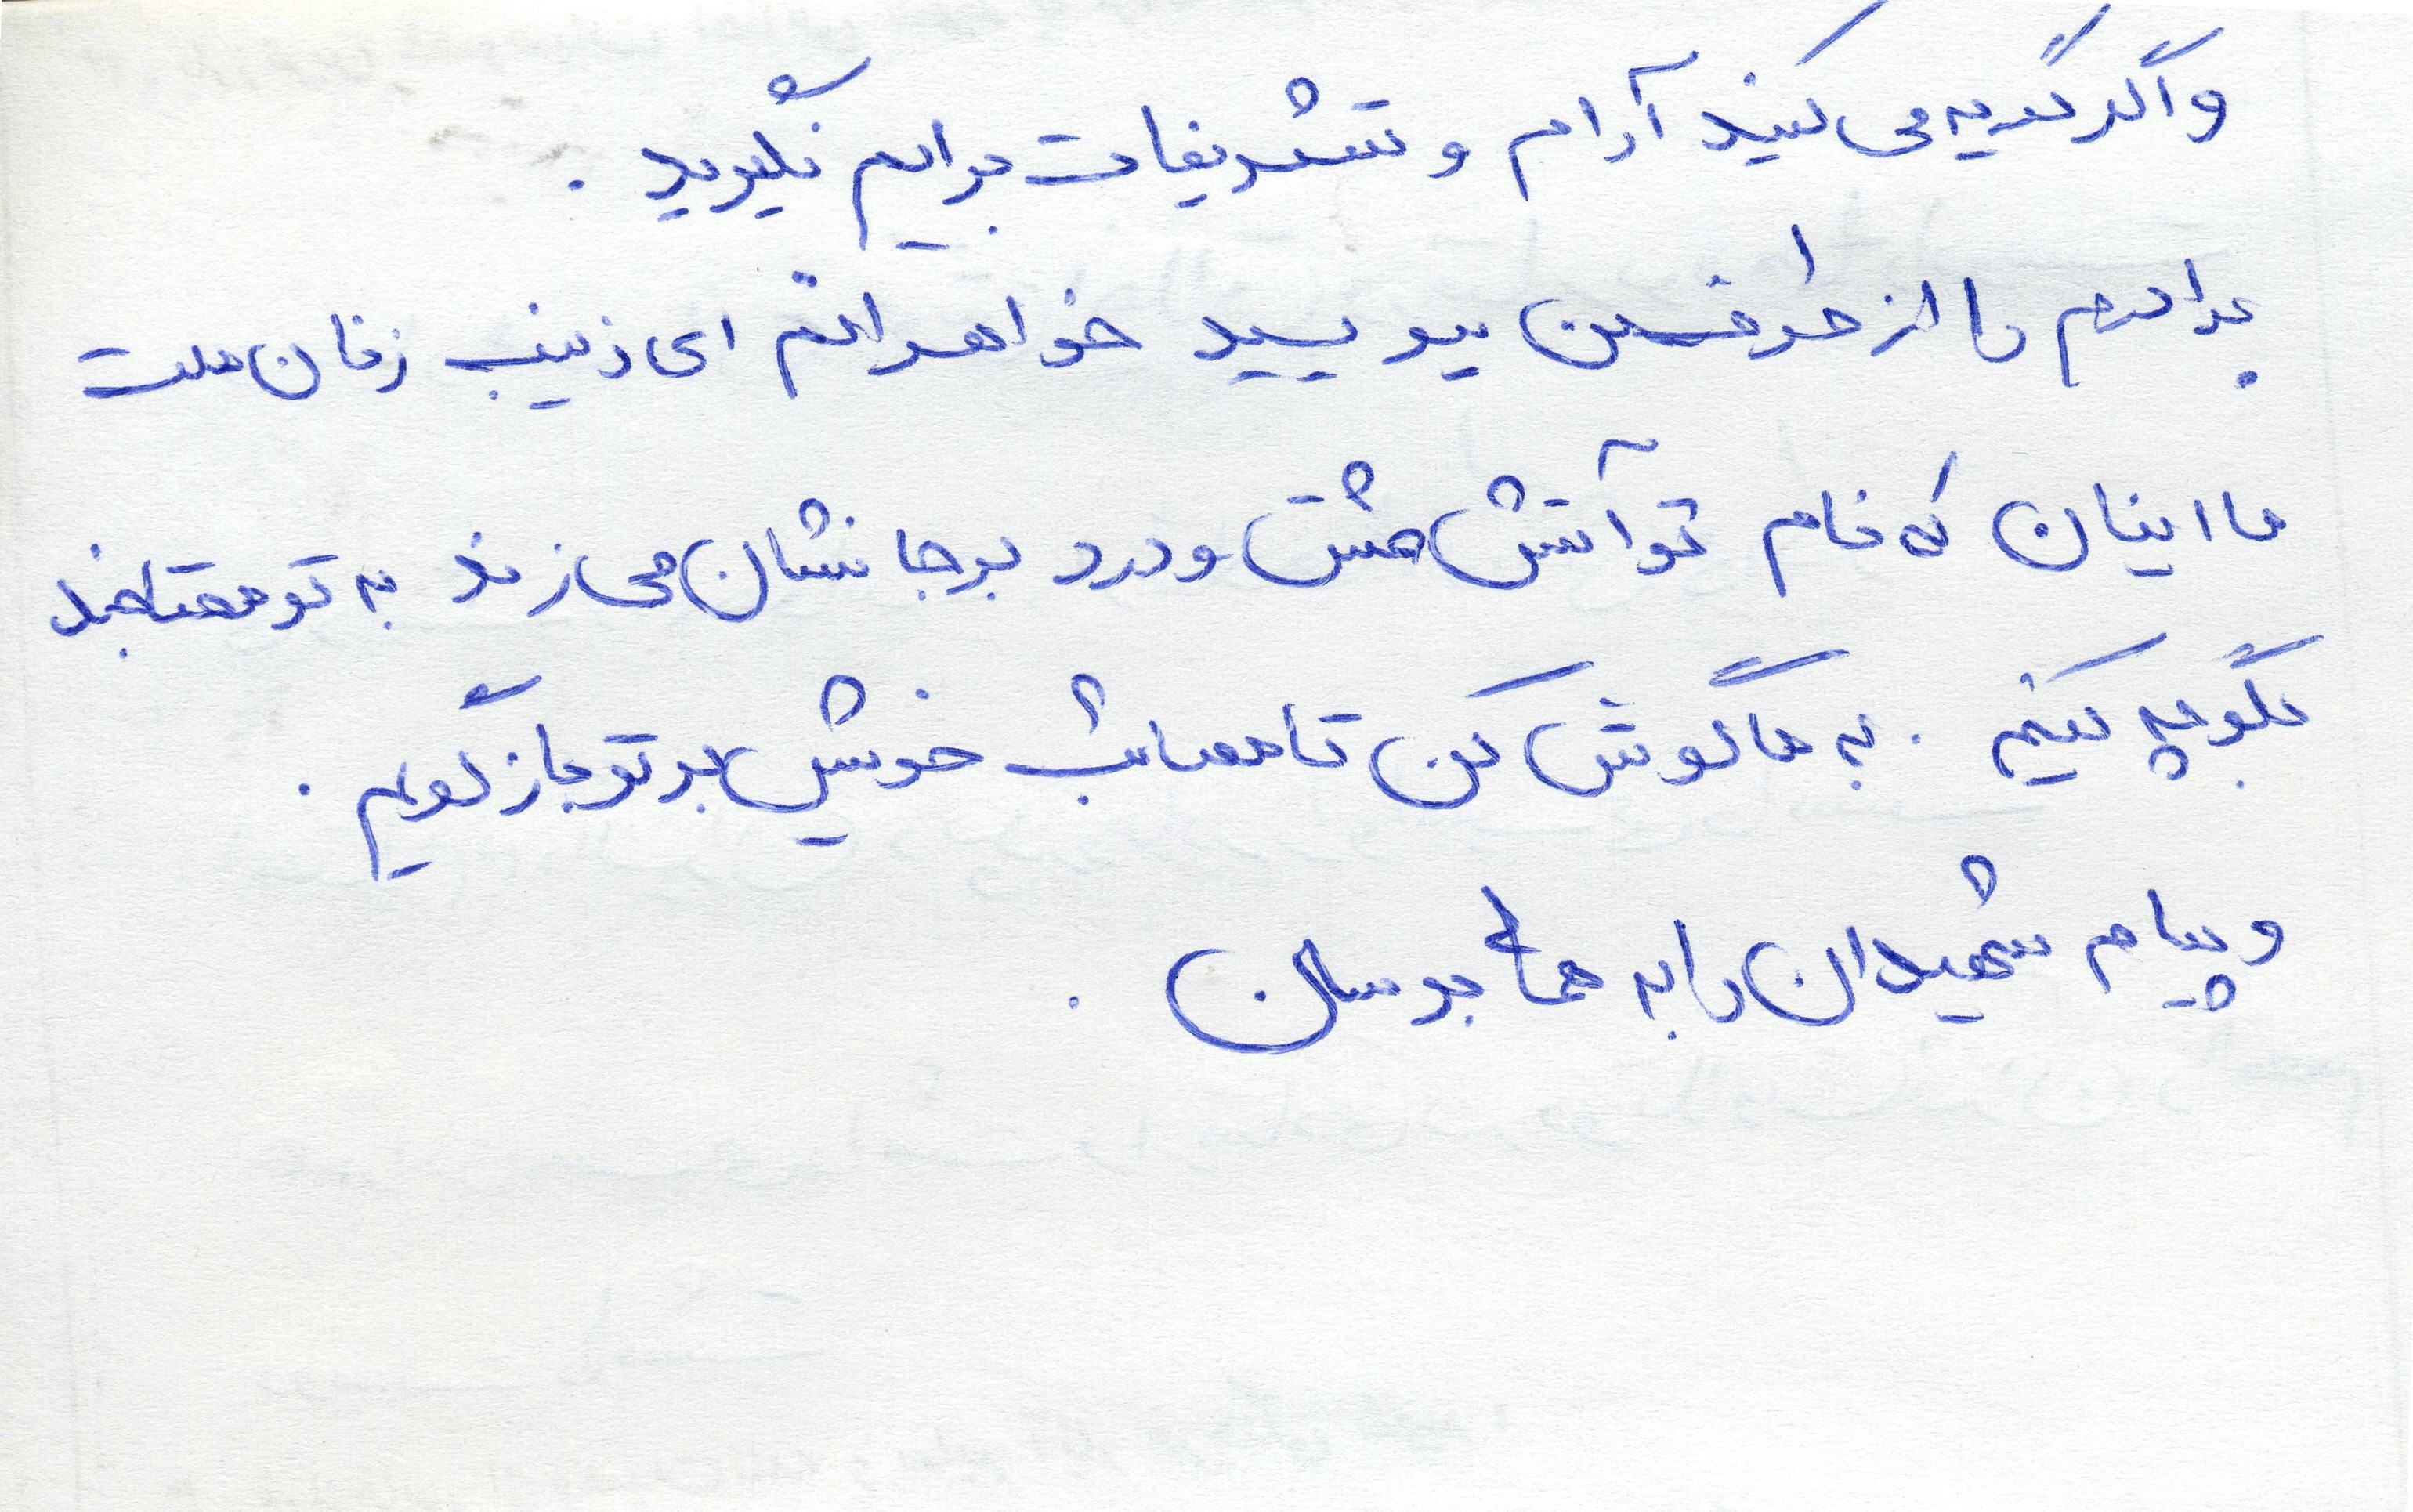 و اگر گریه می کنید آرام و تشریفات برایم نگیرید .
برادرم را از طرف من ببوسید خواهرانم ای زینب زمان ملت
ما اینان که نام تو آتش عشق و درد بر جانشان می زند به تو محتاجند
بگو چه کنیم . به ما گوش کن تا مصائب خویش بر تو بازگویم .
و پیام شهیدان را به ما برسان .